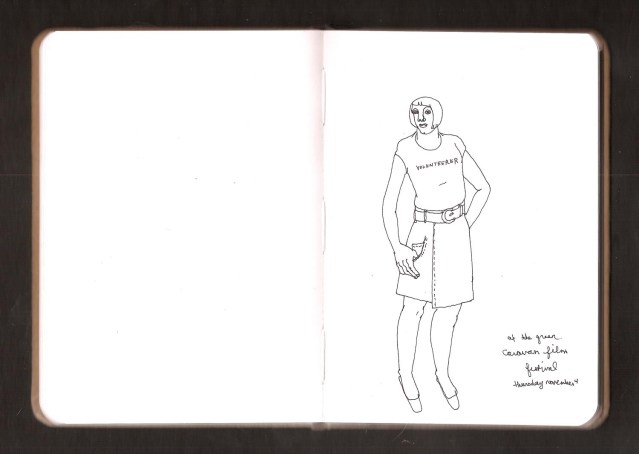 VOLUNTEERER
at the green
Caravan film
festival
thursday november 4